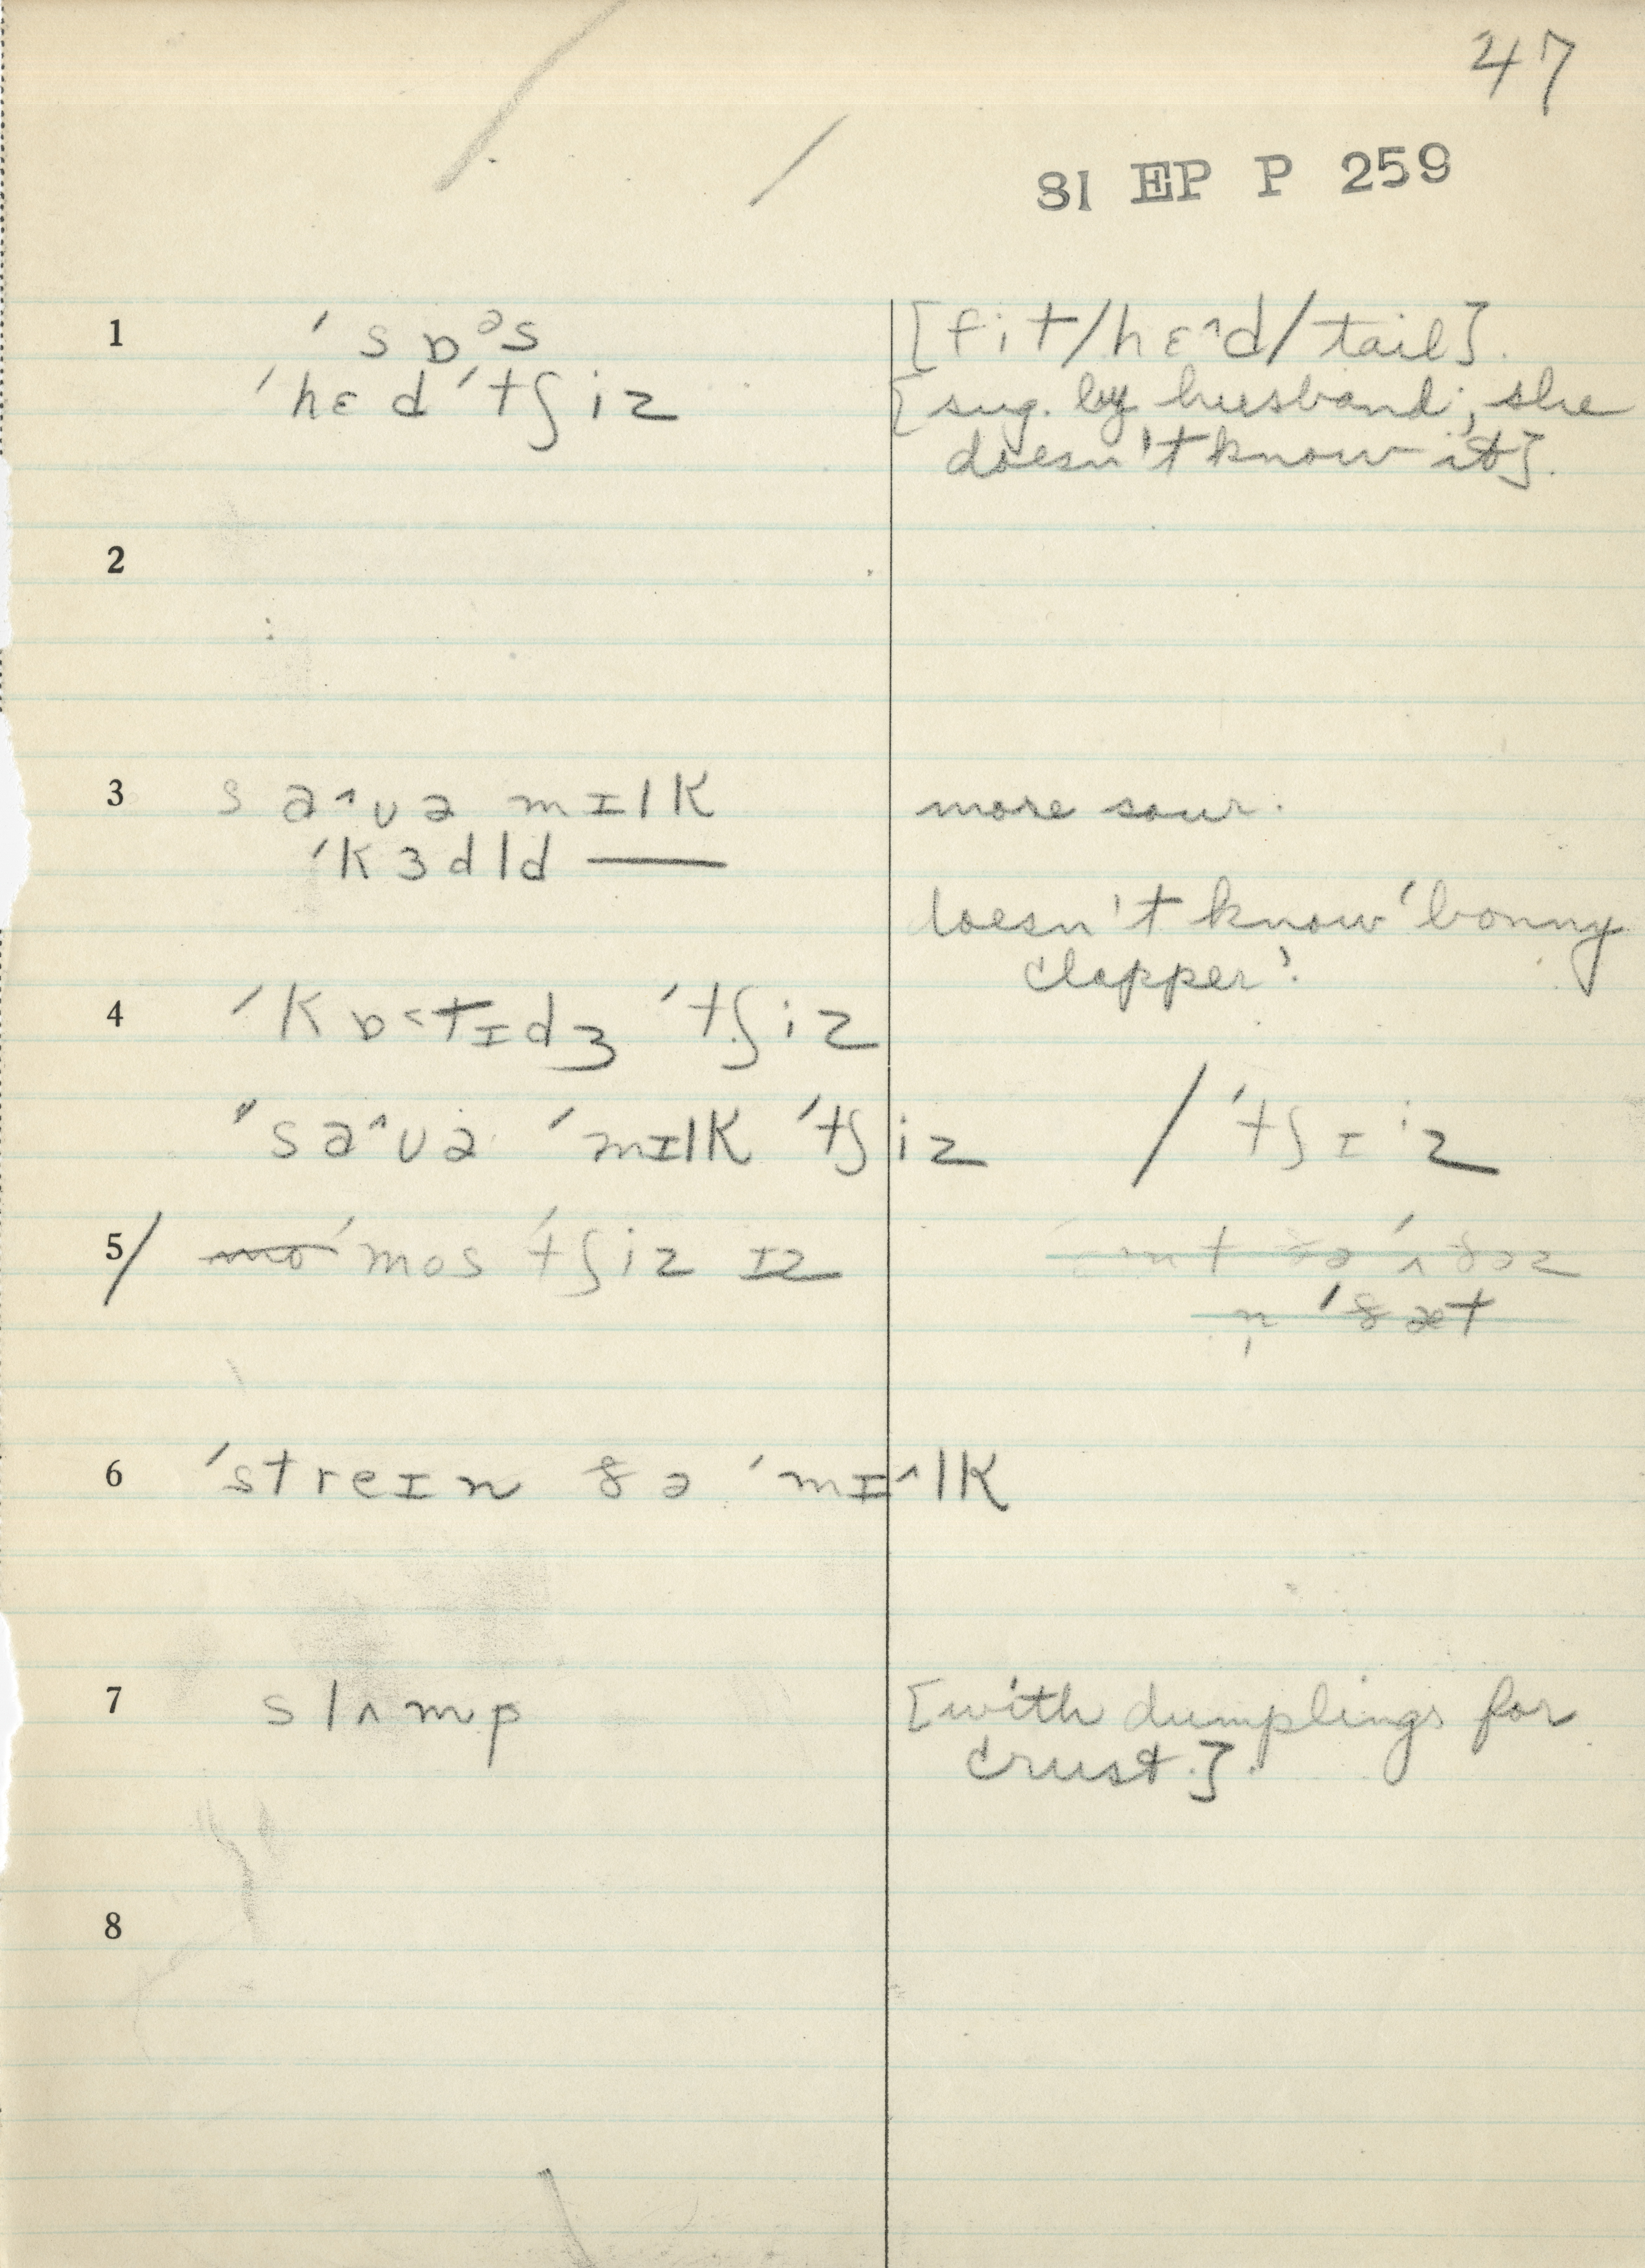 47
81 EP P 259
1 ˈsɒᵊs [fit/hɛ^d/tail].
ˈhɛdˈtʃiz [sug. by husband; she
doesn't know it].
2
3 sa^ʊə mɪlk more sour.
ˈkɜdld —— doesn't know 'bonny
clapper'.
4 ˈkɒ<tɪdʒ ˈtʃiz
ˈsa^ʊə ˈmɪlk ˈtʃiz / ˈtʃɪⁱz
5/ mo ˈmos ˈtʃiz ɪz
n̩ ˈðæt
6 ˈstreɪn ðə ˈmɪ^lk
7 slʌmp [with dumplings for
crust.].
8